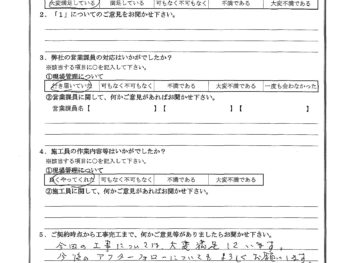 大変満足している 満足している 可も不可もなく 不満である 大変不満である
2．「1」についてのご意見をお聞かせ下さい。
3．弊社の営業課員の対応はいかがでしたか？
※該当する項目に○を記入して下さい。
①現場管理について
行き届いていた 可もなく不可もなく 不満である 大変不満である 一度も会わなかった
②営業課員に関して、何かご意見があればお聞かせ下さい。
営業課員名【 】【 】【 】
4．施工員の作業内容等はいかがでしたか？
※該当する項目に○を記入して下さい。
①現場管理について
良くやってくれた 可もなく不可もなく 不満である 大変不満である
②施工員に関して、何かご意見があればお聞かせ下さい。
5．ご契約時点から工事完工まで、何かご意見等がありましたらお聞かせ下さい。
今回の工事については、大変満足しています。
今後のアフターフォローについてもよろしくお願いします。